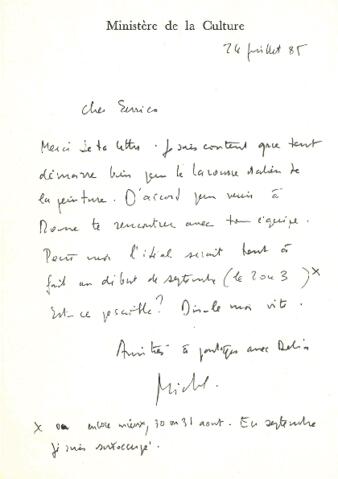 Ministère de la Culture
24 juillet 85
Cher Enrico
Merci de ta lettre. Je suis content que tout
démarre bien pour le Larousse italien de
la peinture. D'accord pour venir à
Rome te rencontrer avec ton équipe.
Pour moi l'idéal serait tout à
fait au début de septembre (le 2 ou 3) x
Est-ce possible? Dis-le moi vite.
Amitiés à partager avec
Michel.
x ou encore mieux, 30 ou 31 aout. En septembre
je suis suroccupé.